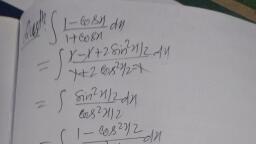 ∫ 1-cosx / 1+cosx dx
= ∫ 1-1+2sin²x/2 / 1+2cos²x/2-1 dx
= ∫ sin²x/2 / cos²x/2 dx
= ∫ 1-cos²x/2 dx